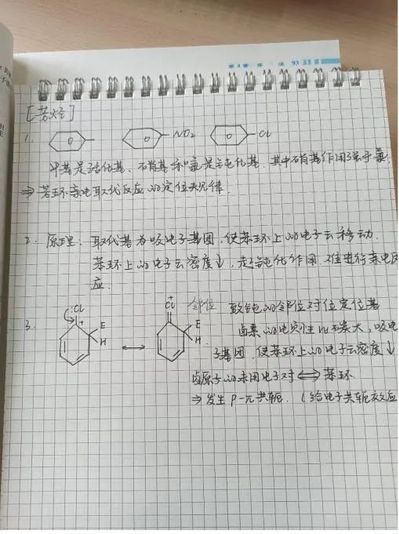 [芳烃]
1. -NO₂ -Cl
甲基是活化基、硝基和氯是钝化基、其中硝基作用强于氯
⇒ 苯环亲电取代反应的定位规律.
2. 原理: 取代基为吸电子基团,使苯环上的电子云移动
苯环上的电子云密度↓,起钝化作用 进行亲电反
应.
3. :Cl E H ↔ Cl⁺ E H 邻位 致钝的邻位对位定位基
卤素的电负性比 大,吸电
子基团,使苯环上的电子云密度↓
卤原子的未用电子对 ⇔ 苯环
⇒ 发生 p-π共轭. (给电子共轭效应